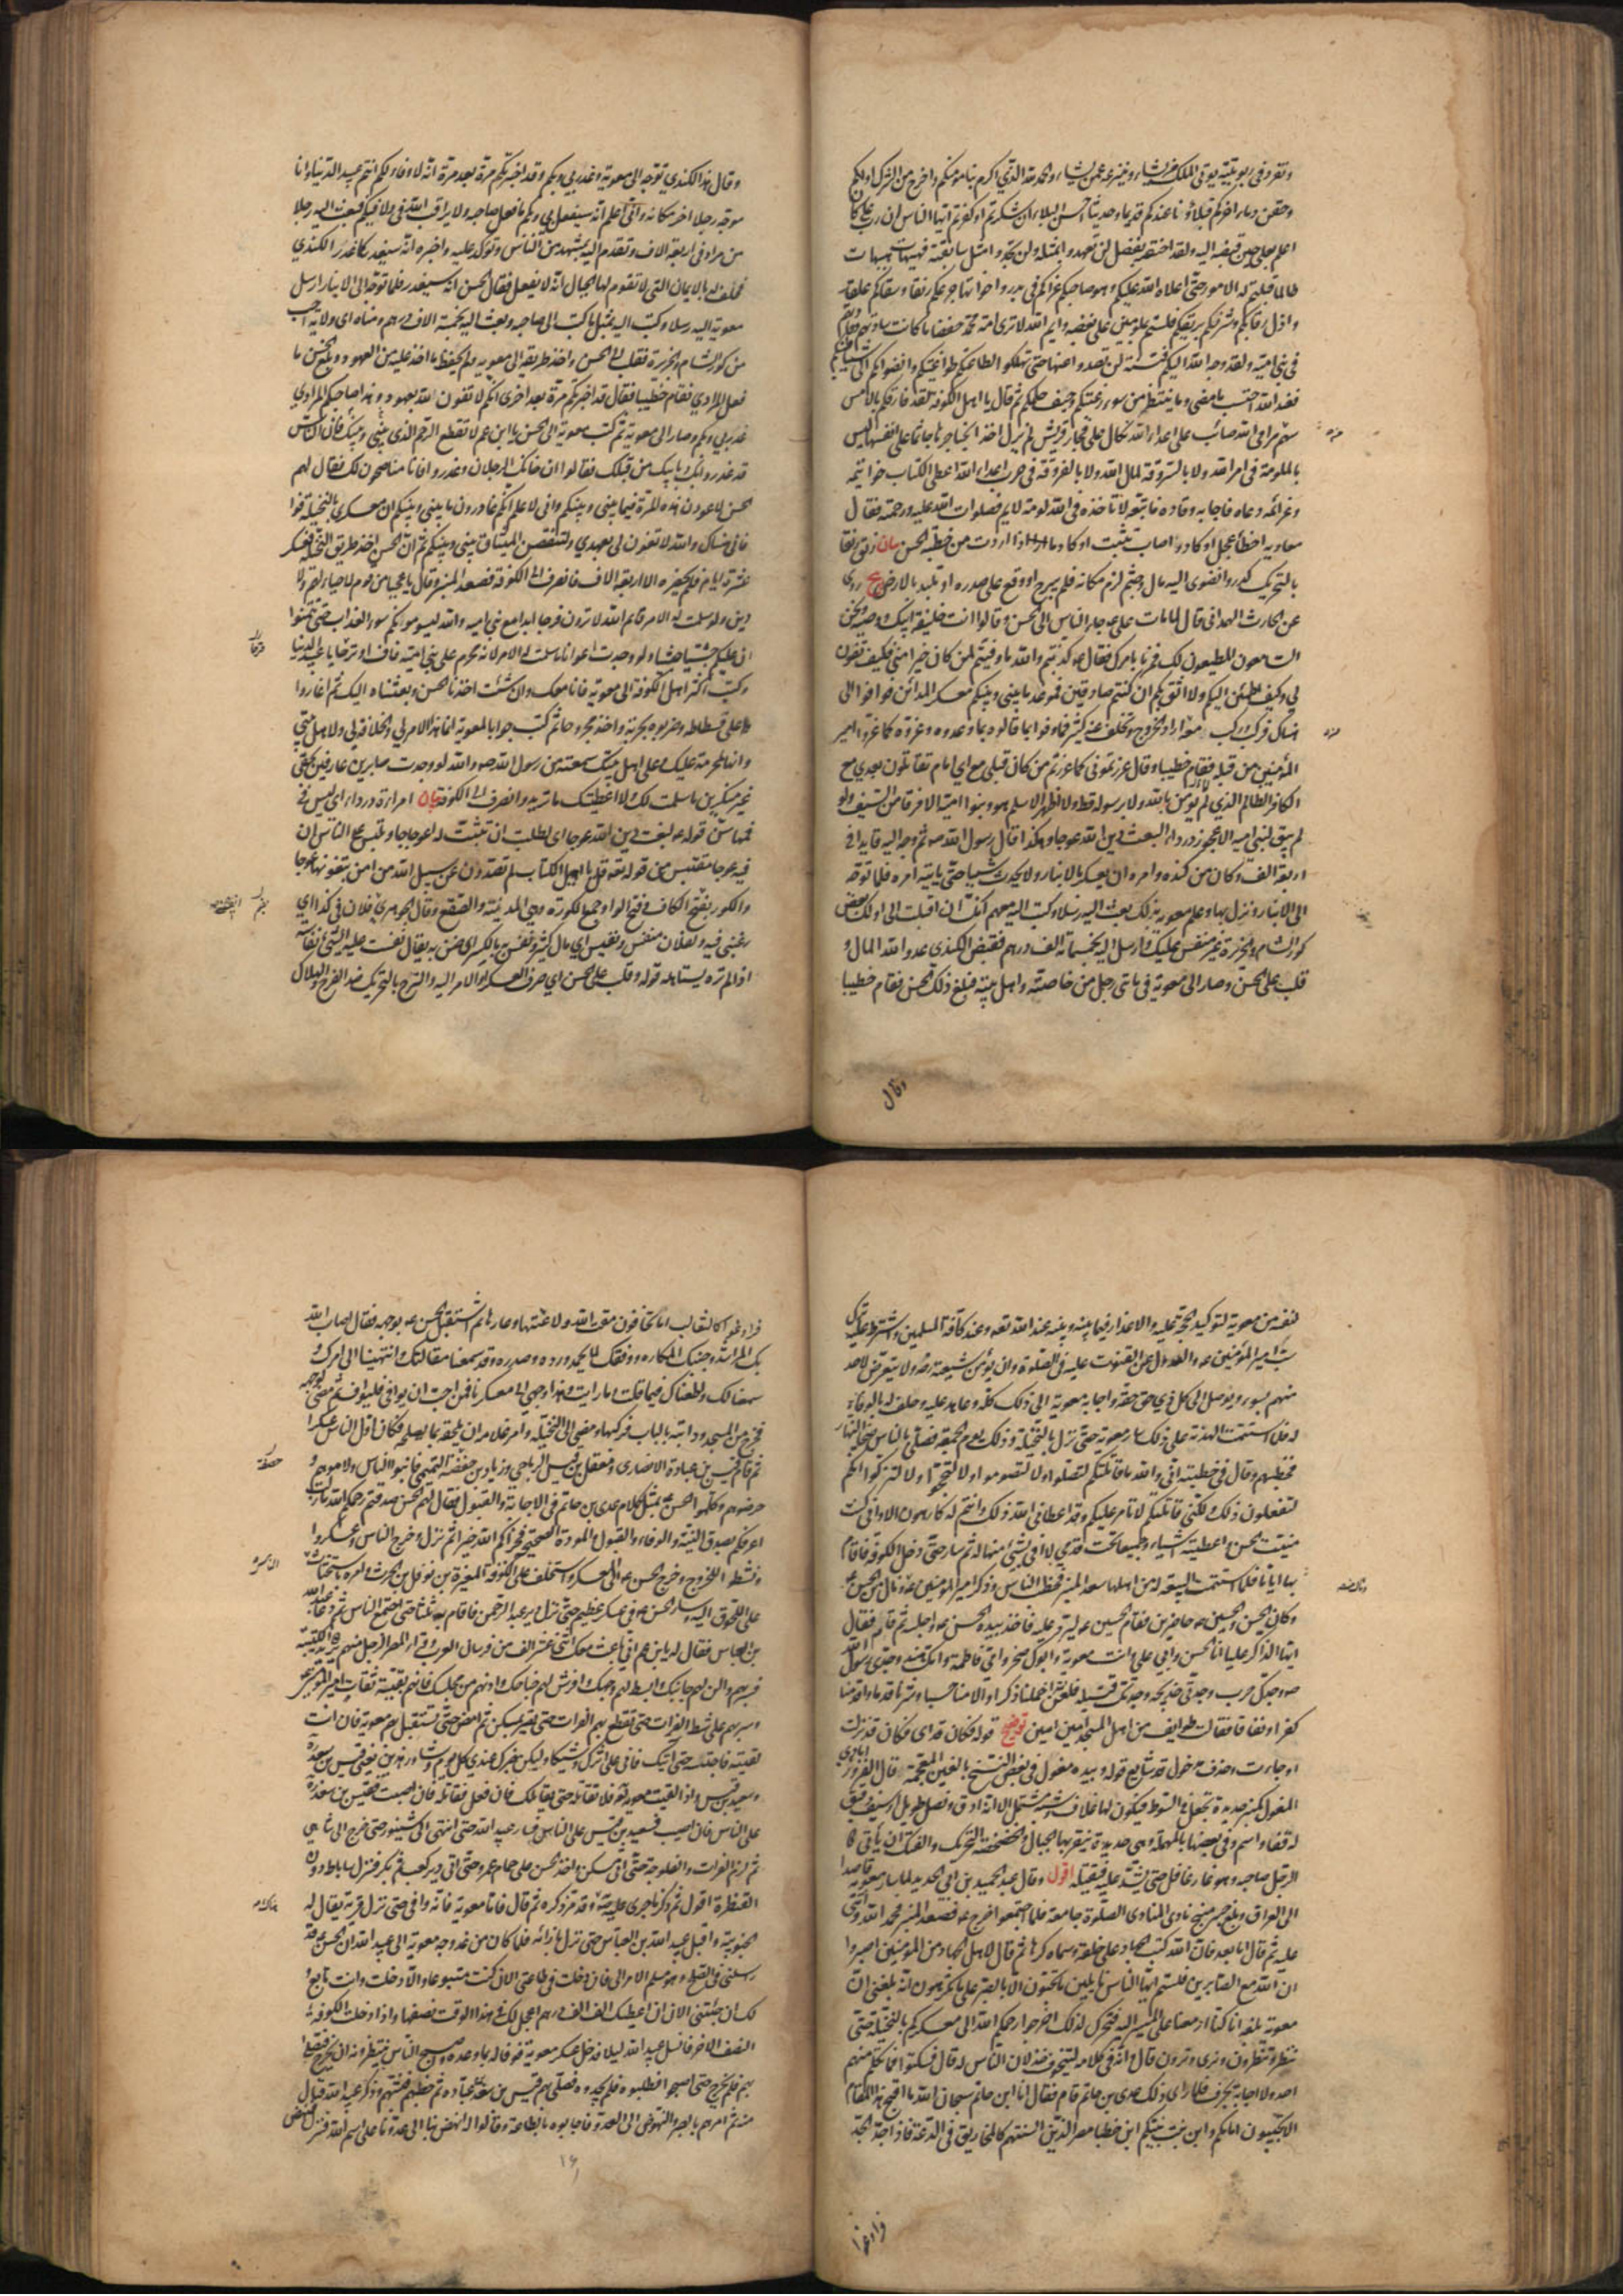 وتفرد في ربوبيته يؤتي الملك من يشاء وينزعه عمن يشاء والحمد لله الذي اكرم بنا مؤمنكم واخرج من الشرك اولكم
وحقن دماء اخركم فبلاؤنا عندكم قديما وحديثا احسن البلاء ان شكرتم او كفرتم ايها الناس ان رب علي كان
اعلم بعلي حين قبضه اليه ولقد اختصه بفضل لن تعهدوا بمثله ولن تجدوا مثل سابقته فهيهات هيهات
طالما قلبتم له الامور حتى اعلاه الله عليكم وهو صاحبكم غزاكم في بدر واخواتها جرعكم رنقا وسقاكم علقا
واذل رقابكم وشرقكم بريقكم فلستم بملومين على بغضه وايم الله لا ترى امة محمد خفضا ما كانت سادتهم وقادتهم
في بني امية ولقد وجه الله اليكم فتنة لن تصدوا عنها حتى تهلكوا لطاعتكم طواغيتكم وانضوائكم الى شياطينكم
فعند الله احتسب ما مضى وما ينتظر من سوء رغبتكم وحيف حلمكم ثم قال يا اهل الكوفة لقد فارقكم بالامس
سهم من مرامي الله صائب على اعداء الله نكال على فجار قريش لم يزل اخذا بحناجرها جاثما على انفسها ليس
بالملومة في امر الله ولا بالسروقة لمال الله ولا بالفروقة في حرب اعداء الله اعطى الكتاب خواتيمه
وعزائمه دعاه فاجابه وقاده فاتبعه لا تاخذه في الله لومة لائم فصلوات الله عليه ورحمته فقال
معاوية اخطأ عجل او كاد واصاب متثبت او كاد ماذا اردت من خطبة الحسن بيان رنق الماء
بالتحريك كدر وانضوى اليه مال وجثم لزم مكانه فلم يبرح او وقع على صدره او تلبد بالارض يج روي
عن الحارث الهمداني قال لما مات علي ع جاء الناس الى الحسن وقالوا انت خليفة ابيك ووصيه ونحن
السامعون المطيعون لك فمرنا بامرك فقال ع كذبتم والله ما وفيتم لمن كان خيرا مني فكيف تفون
لي وكيف اطمئن اليكم ولا اثق بكم ان كنتم صادقين فموعد ما بيني وبينكم معسكر المدائن فوافوا الى
هناك فركب وركب معه من اراد الخروج وتخلف عنه كثير فما وفوا بما قالوه وبما وعدوه وغروه كما غروا امير
المؤمنين من قبله فقام خطيبا وقال غررتموني كما غررتم من كان قبلي مع اي امام تقاتلون بعدي مع
الكافر الظالم الذي لم يؤمن بالله ولا برسوله قط ولا اظهر الاسلام هو وبنو امية الا فرقا من السيف ولو
لم يبق لبني امية الا عجوز درداء لبغت دين الله عوجا وهكذا قال رسول الله صه ثم وجه اليه قايدا في
اربعة الف وكان من كندة وامره ان يعسكر بالانبار ولا يحدث شيئا حتى ياتيه امره فلما توجه
الى الانبار ونزل بها وعلم معوية بذلك بعث اليه رسلا وكتب اليه معهم انك ان اقبلت الي اولك بعض
كور الشام والجزيرة غير منفس عليك وارسل اليه بخمسمائة الف درهم فقبض الكندي عدو الله المال و
قلب على الحسن وصار الى معوية في مائتي رجل من خاصته واهل بيته فبلغ ذلك الحسن فقام خطيبا
وقال
وقال هذا الكندي توجه الى معوية وغدر بي وبكم وقد اخبرتكم مرة بعد مرة انه لا وفاء لكم انتم عبيد الدنيا وانا
موجه رجلا اخر مكانه واني اعلم انه سيفعل بي وبكم ما فعل صاحبه ولا يراقب الله في ولا فيكم فبعث اليه رجلا
من مراد في اربعة الاف وتقدم اليه بمشهد من الناس وتوكد عليه واخبره انه سيغدر كما غدر الكندي
فحلف له بالايمان التي لا تقوم لها الجبال انه لا يفعل فقال الحسن انه سيغدر فلما توجه الى الانبار ارسل
معوية اليه رسلا وكتب اليه بمثل ما كتب الى صاحبه وبعث اليه بخمسة الاف درهم ومناه اي ولاية احب
من كور الشام والجزيرة فقلب على الحسن واخذ طريقه الى معوية ولم يحفظ ما اخذ عليه من العهود وبلغ الحسن ما
فعل المرادي فقام خطيبا فقال قد اخبرتكم مرة بعد اخرى انكم لا تفون لله بعهود وهذا صاحبكم المرادي
غدر بي وبكم وصار الى معوية ثم كتب معوية الى الحسن يا ابن عم لا تقطع الرحم الذي بيني وبينك فان الناس
قد غدروا بك وبابيك من قبلك فقالوا ان خانك الرجلان وغدروا فانا مناصحون لك فقال لهم
الحسن لاعودن هذه المرة فيما بيني وبينكم واني لاعلم انكم غادرون ما بيني وبينكم ان معسكري بالنخيلة فوا
فوني هناك والله لا تفون لي بعهدي ولتنقضن الميثاق بيني وبينكم ثم ان الحسن اخذ طريق النخيلة فعسكر
عشرة ايام فلم يحضره الا اربعة الاف فانصرف الى الكوفة فصعد المنبر وقال يا عجبا من قوم لا حياء لهم ولا
دين ولو سلمت له الامر فايم الله لا ترون فرجا ابدا مع بني امية والله ليسومونكم سوء العذاب حتى تتمنوا
ان عليكم جيشا جيشا ولو وجدت اعوانا ما سلمت له الامر لانه محرم على بني امية فاف وترحا يا عبيد الدنيا
وكتب اكثر اهل الكوفة الى معوية فانا معك وان شئت اخذنا الحسن وبعثناه اليك ثم اغاروا
على فسطاطه وضربوه بحربة واخذ مجروحا ثم كتب جوابا لمعوية انما هذا الامر لي والخلافة لي ولاهل بيتي
وانها لمحرمة عليك وعلى اهل بيتك سمعته من رسول الله صه والله لو وجدت صابرين عارفين بحقي
غير منكرين ما سلمت لك ولا اعطيتك ما تريد وانصرف الى الكوفة بيان امراة درداء اي ليس في
فمها سن قوله ع لبغت دين الله عوجا اي لطلبت ان تثبت له اعوجاجا وتلبس على الناس ان
فيه عوجا مقتبس من قوله تعه قل يا اهل الكتاب لم تصدون عن سبيل الله من امن تبغونها عوجا
والكور بفتح الكاف وفتح الواو جمع الكورة وهي المدينة والصقع وقال الجوهري فلان في كذا اي
رغبني فيه ولفلان منفس ونفيس اي مال كثير ونفس به بالكسر اي ضن به يقال نفست عليه الشئ نفاسة
اذا لم تره يستاهله قوله وقلب على الحسن اي صرف العسكر او الامر اليه والترح بالتحريك ضد الفرح والهلاك
لنفسه من معوية لتوكيد الحجة عليه والاعذار فيما بينه وبينه عند الله تعه وعند كافة المسلمين واشترط عليه ترك
سب امير المؤمنين ع والعدول عن القنوت عليه في الصلوة وان يؤمن شيعته رض ولا يتعرض لاحد
منهم بسوء ويوصل الى كل ذي حق حقه واجابه معوية الى ذلك كله وعاهده عليه وحلف له بالوفاء
له فلما استتمت الهدنة على ذلك سار معوية حتى نزل بالنخيلة وذلك يوم الجمعة فصلى بالناس ضحى النهار
فخطبهم وقال في خطبته اني والله ما قاتلتكم لتصلوا ولا لتصوموا ولا لتحجوا ولا لتزكوا انكم
لتفعلون ذلك ولكني قاتلتكم لاتامر عليكم وقد اعطاني الله ذلك وانتم له كارهون الا واني كنت
منيت الحسن واعطيته اشياء وجميعها تحت قدمي لا افي بشئ منها له ثم سار حتى دخل الكوفة فاقام
بها اياما فلما استتمت البيعة له من اهلها صعد المنبر فخطب الناس وذكر امير المؤمنين ع ونال من الحسن ع
وكان الحسن والحسين ع حاضرين فقام الحسين ع ليرد عليه فاخذ بيده الحسن ع واجلسه ثم قام فقال
ايها الذاكر عليا انا الحسن وابي علي وانت معوية وابوك صخر وامي فاطمة وامك هند وجدي رسول الله
صه وجدك حرب وجدتي خديجة وجدتك قتيلة فلعن الله اخملنا ذكرا والامنا حسبا وشرنا قدما واقدمنا
كفرا ونفاقا فقالت طوايف من اهل المسجد امين امين توضيح قوله فكان قد اي فكان قد نزلت
او جاءت وحذف مدخول قد شايع قوله وبيده مغول في بعض النسخ بالغين المعجمة قال الفيروزابادي
المغول كمنبر حديدة تجعل في السوط فيكون لها غلافا وشبه مشمل الا انه ادق ونصل طويل او سيف دقيق
له قفا واسم وفي بعضها بالمهملة وهي حديدة ينقر بها الجبال والخضخضة التحريك والفتك ان ياتي
الرجل صاحبه وهو غار غافل حتى يشد عليه فيقتله اقول وقال عبد الحميد بن ابي الحديد لما سار معوية قاصدا
الى العراق وبلغ جسر منبج نادى المنادي الصلوة جامعة فلما اجتمعوا خرج ع فصعد المنبر فحمد الله واثنى
عليه ثم قال اما بعد فان الله كتب الجهاد على خلقه وسماه كرها ثم قال لاهل الجهاد من المؤمنين اصبروا
ان الله مع الصابرين فلستم ايها الناس نايلين ما تحبون الا بالصبر على ما تكرهون انه بلغني ان
معوية بلغه انا كنا ازمعنا على المسير اليه فتحرك لذلك اخرجوا رحمكم الله الى معسكركم بالنخيلة حتى
ننظر وتنظرون ونرى وترون قال وانه في كلامه ليتخوف خذلان الناس له قال فسكتوا فما تكلم منهم
احد ولا اجابه بحرف فلما راى ذلك عدي بن حاتم قام فقال انا ابن حاتم سبحان الله ما اقبح هذا المقام
الا تجيبون امامكم وابن بنت نبيكم اين خطباء مصر الذين السنتهم كالمخاريق في الدعة فاذا جد الجد
فراوغوا
فراوغوا كالثعالب اما تخافون مقت الله ولا عنتها وعارها ثم استقبل الحسن ع بوجهه فقال اصاب الله
بك المراشد وجنبك المكاره ووفقك لما يحمد ورده وصدره وقد سمعنا مقالتك وانتهينا الى امرك و
سمعنا لك واطعناك فيما قلت وما رايت وهذا وجهي الى معسكرنا فمن احب ان يوافي فليواف ثم مضى لوجهه
فخرج من المسجد ودابته بالباب فركبها ومضى الى النخيلة وامر غلامه ان يلحقه بما يصلحه فكان اول الناس عسكرا
ثم قام قيس بن عبادة الانصاري ومعقل بن قيس الرياحي وزياد بن حفصة التيمي فانبوا الناس ولاموهم و
حرضوهم وكلموا الحسن ع بمثل كلام عدي بن حاتم في الاجابة والقبول فقال لهم الحسن صدقتم رحمكم الله ما زلت
اعرفكم بصدق النية والوفاء والقبول والمودة الصحيحة فجزاكم الله خيرا ثم نزل وخرج الناس وعسكروا
ونشطوا للخروج وخرج الحسن ع الى المعسكر واستخلف على الكوفة المغيرة بن نوفل بن الحرث وامره باستحثاث
على اللحوق اليه وسار الحسن ع في عسكر عظيم حتى نزل دير عبد الرحمن فاقام به ثلثا حتى اجتمع الناس ثم دعا عبيد الله
بن العباس فقال له يا ابن عم اني باعث معك اثني عشر الف من فرسان العرب وقراء المصر الرجل منهم يزيد الكتيبة
فسر بهم والن لهم جانبك وابسط لهم وجهك وافرش لهم جناحك وادنهم من مجلسك فانهم بقية ثقات امير المؤمنين ع
وسر بهم على شط الفرات حتى تقطع بهم الفرات حتى تصير بمسكن ثم امض حتى تستقبل بهم معوية فان انت
لقيته فاحبسه حتى اتيك فاني على اثرك وشيكا وليكن خبرك عندي كل يوم وشاور هذين يعني قيس بن سعد
وسعيد بن قيس واذا لقيت معوية فلا تقاتله حتى يقاتلك فان فعل فقاتله فان اصبت فقيس بن سعد
على الناس فان اصيب فسعيد بن قيس على الناس فسار عبيد الله حتى انتهى الى شينور حتى خرج الى شاهي
ثم لزم الفرات والفلوجة حتى اتى مسكن واخذ الحسن على حمام عمر وحتى اتى دير كعب ثم بكر فنزل ساباط دون
القنطرة اقول ثم ذكر ما جرى عليه وقد مر ذكره ثم قال فاما معوية فانه وافى حتى نزل قرية يقال له
الحبوبية واقبل عبيد الله بن العباس حتى نزل بازائه فلما كان من غد وجه معوية الى عبيد الله ان الحسن قد
راسلني في الصلح وهو مسلم الامر الي فان دخلت في طاعتي الان كنت متبوعا والا دخلت وانت تابع و
لك ان جئتني الان ان اعطيك الف الف درهم اعجل لك في هذا الوقت نصفها واذا دخلت الكوفة
النصف الاخر فانسل عبيد الله ليلا فدخل عسكر معوية فوفى له بما وعده واصبح الناس ينتظرونه ان يخرج فيصلي
بهم فلم يخرج حتى اصبحوا فطلبوه فلم يجدوه فصلى بهم قيس بن سعد بن عبادة ثم خطبهم فثبتهم وذكر عبيد الله فنال
منه ثم امرهم بالصبر والنهوض الى العدو فاجابوه بالطاعة وقالوا له انهض بنا الى عدونا على اسم الله فنزل فنهض